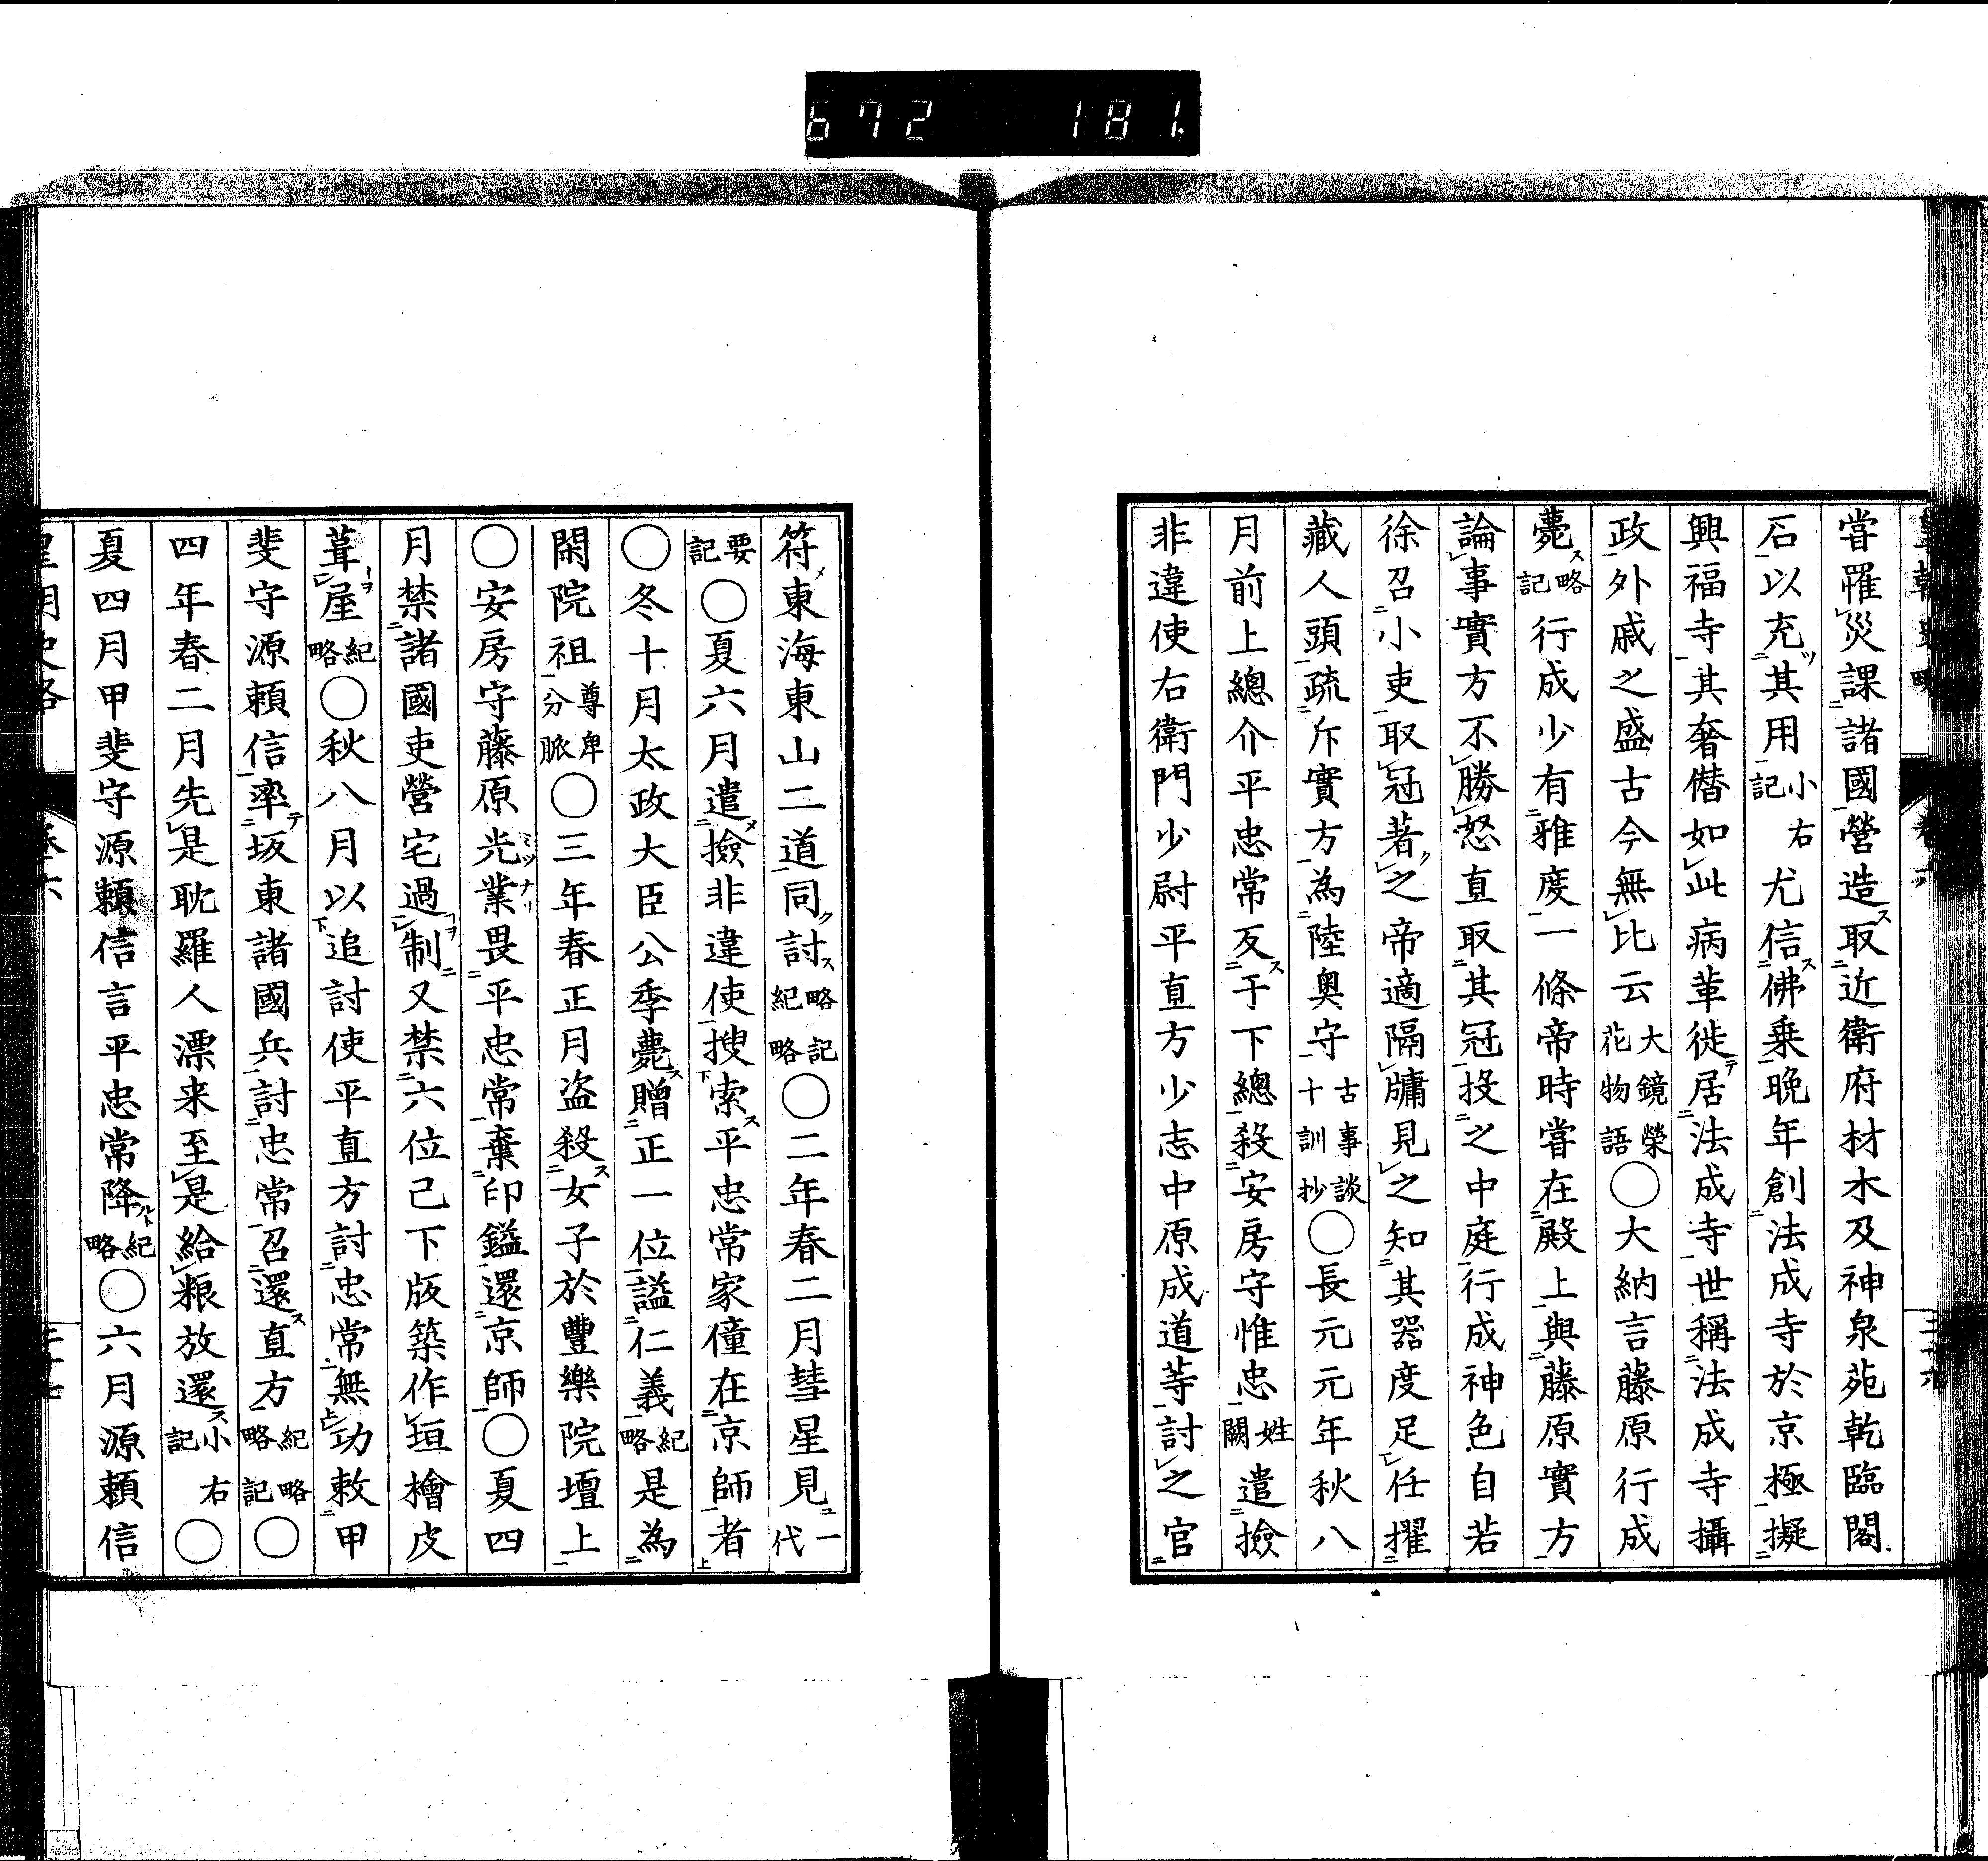 672 181.
嘗罹災課諸國營造ス取近衛府材木及神泉苑乾臨閣
石以充其用小右記尤信佛乗晩年創法成寺於京極擬
興福寺其奢僭如此病革徙居法成寺世稱法成寺攝
政外戚之盛古今無比云大鏡榮花物語〇大納言藤原行成
薨ス略記行成少有雅度一條帝時嘗在殿上與藤原實方
論事實方不勝怒直取其冠投之中庭行成神色自若
徐召小吏取冠著之帝適隔牗見之知其器度足任擢
藏人頭疏斥實方為陸奥守古事談十訓抄〇長元元年秋八
月前上總介平忠常反于下總殺安房守惟忠姓闕遣撿
非違使右衛門少尉平直方少志中原成道等討之官
符東海東山二道同討ス略記紀略〇二年春二月彗星見一代
要記〇夏六月遣撿非違使搜索平忠常家僮在京師者
〇冬十月太政大臣公季薨贈正一位謚仁義紀略是為
閑院祖尊卑分脈〇三年春正月盗殺女子於豐樂院壇上
〇安房守藤原光業畏平忠常棄印鎰還京師〇夏四
月禁諸國吏營宅過制又禁六位己下版築作垣檜皮
葺屋紀略〇秋八月以追討使平直方討忠常無功敕甲
斐守源頼信率坂東諸國兵討忠常召還直方紀略略記〇
四年春二月先是耽羅人漂来至是給粮放還小右記〇
夏四月甲斐守源頼信言平忠常降紀略〇六月源頼信